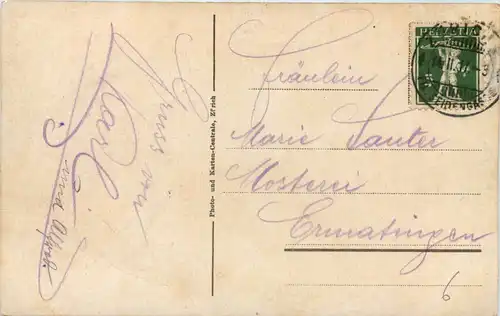 Gruss von
Karl
und
Photo- und Karten-Centrale, Zürich
Fräulein
Marie Sauter
Mosterei
Ermatingen
6
HELVETIA